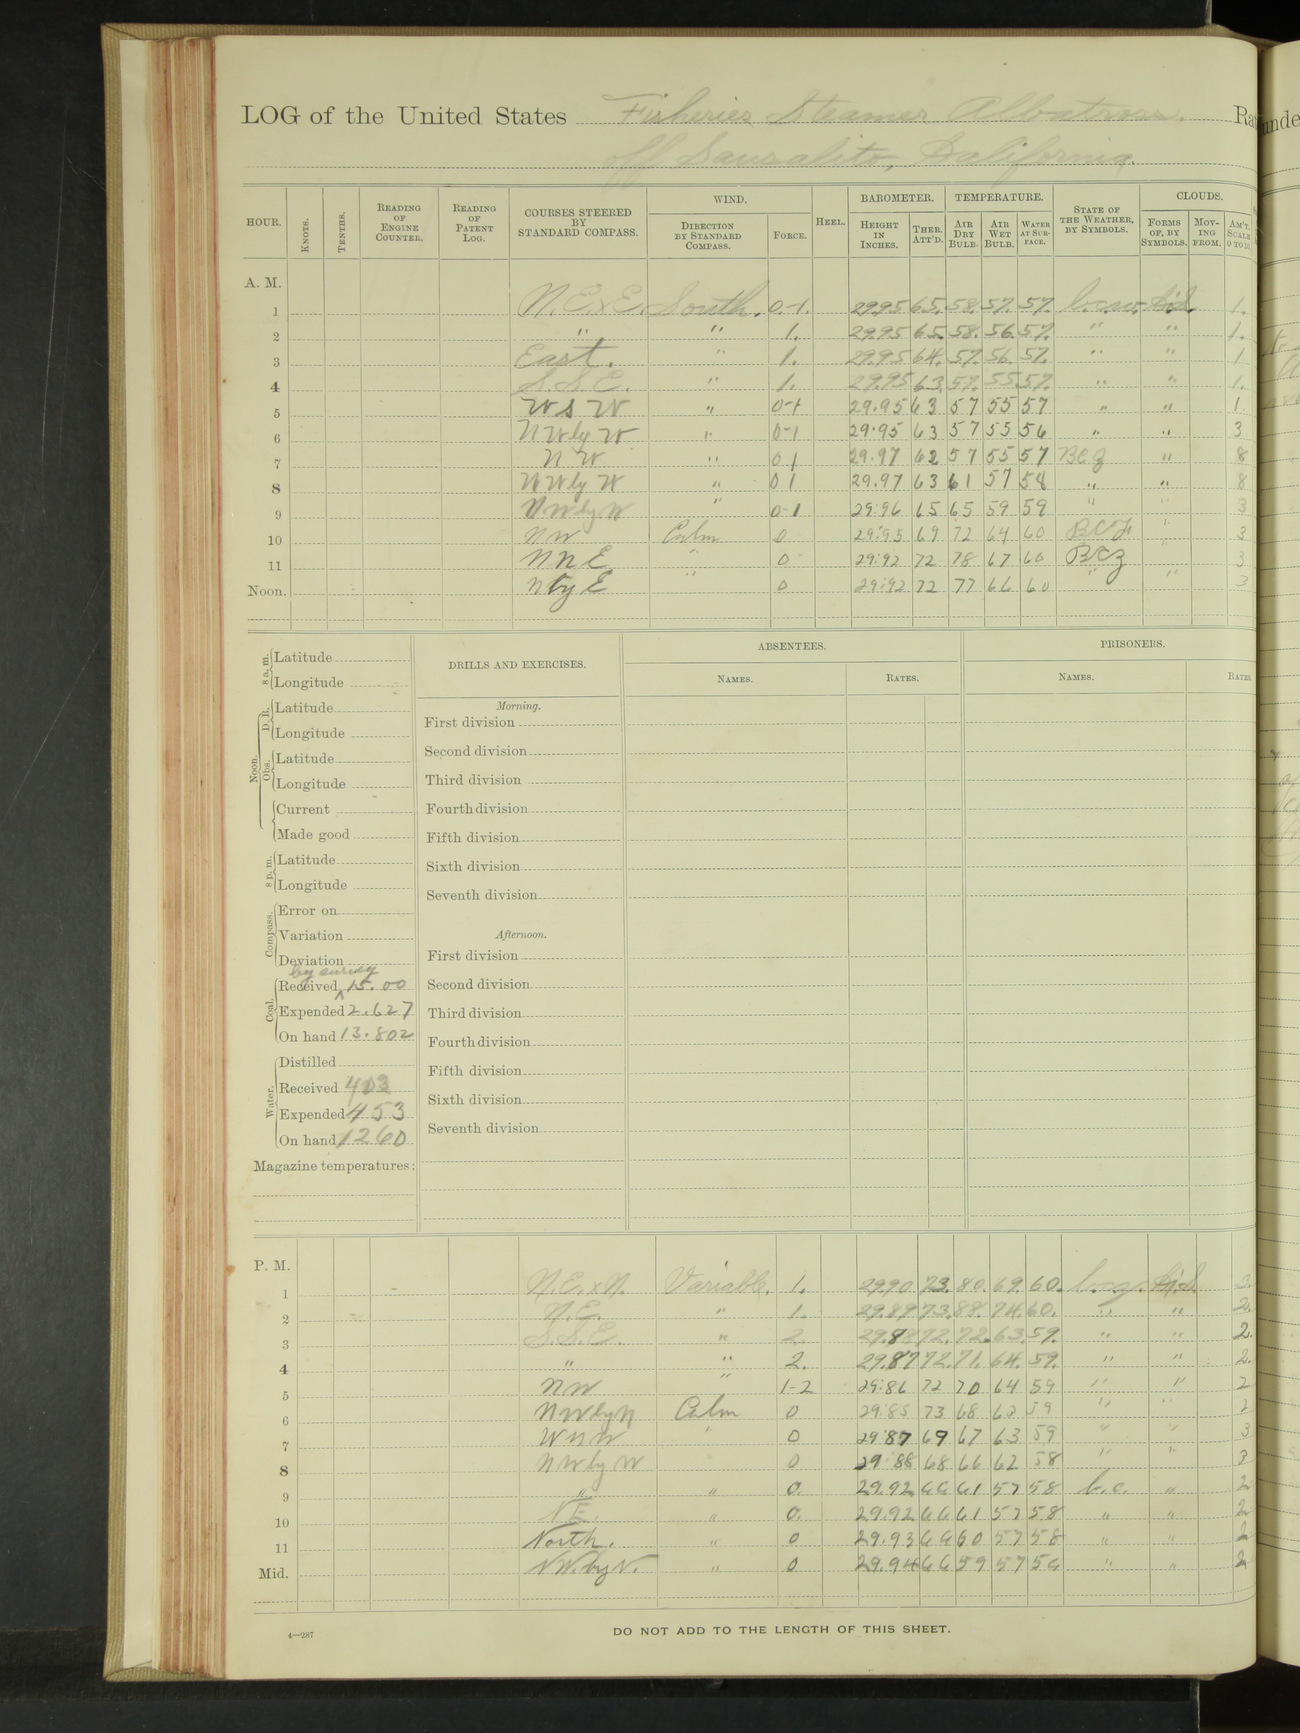 LOG of the United States Fisheries Steamer Albatross. Ra
off Sausalito, California.
HOUR. KNOTS. TENTHS. READING OF ENGINE COUNTER. READING OF PATENT LOG. COURSES STEERED BY STANDARD COMPASS. WIND. DIRECTION BY STANDARD COMPASS. FORCE. HEEL. BAROMETER. HEIGHT IN INCHES. THER. ATT'D. TEMPERATURE. AIR DRY BULB. AIR WET BULB. WATER AT SURFACE. STATE OF THE WEATHER, BY SYMBOLS. CLOUDS. FORMS OF, BY SYMBOLS. MOVING FROM. AM'T, SCALE 0 TO 10.
A. M.
1 N.E.xE. South. 0-1. 29.95 65. 58. 57. 57. b.c.w. 1.
2 " " 1. 29.95 65. 58. 56. 57. " " 1.
3 East. " 1. 29.95 64. 57. 56. 57. " " 1
4 S.S.E. " 1. 29.95 63. 57. 55 57. " " 1.
5 W S W " 0-1 29.95 63 57 55 57 " " 1.
6 N W by W " 0-1 29.95 63 57 55 56 " " 3
7 N W " 0 1 29.97 62 57 55 57 Bcz " 8
8 N W by W " 0 1 29.97 63 61 57 58 " " 8
9 N W by W " 0-1 29.96 65 65 59 59 " " 3
10 NW Calm 0 29.95 69 72 64 60 " 3
11 N N E " 0 29.92 72 78 67 60 Bcz " 3
Noon. N by E " 0 29.92 72 77 66 60 " " 3
8 a.m. Latitude
Longitude
Noon. D. R. Latitude
Longitude
Obs. Latitude
Longitude
Current
Made good
8 p.m. Latitude
Longitude
Compass. Error on
Variation
Deviation
by survey
Coal. Received ^ 15.00
Expended 2.627
On hand 13.802
Water. Distilled
Received 403
Expended 453
On hand 1260
Magazine temperatures:
DRILLS AND EXERCISES.
Morning.
First division
Second division
Third division
Fourth division
Fifth division
Sixth division
Seventh division
Afternoon.
First division
Second division
Third division
Fourth division
Fifth division
Sixth division
Seventh division
ABSENTEES.
NAMES. RATES.
PRISONERS.
NAMES. RATES.
P. M.
1 N.E.xN. Variable. 1. 29.90 73. 80. 69. 60. b.c.z. 2.
2 N.E. " 1. 29.89 73. 88. 74. 60. " " 2.
3 S.S.E. " 2. 72. 72. 63. 59. " " 2.
4 " " 2. 29.87 72. 71. 64. 59. " " 2.
5 NW " 1-2 29.86 72 70 64 59 " " 2
6 NW by N Calm 0 29.85 73 68 62 59 " " 2
7 W N W " 0 29.87 69 67 63 59 " " 3
8 N W by W 0 29.88 68 66 62 58 " " 3
9 " " 0. 29.92 66 61 57 58 b.c. " 2
10 NE. " 0. 29.92 66 61 57 58 " " 2
11 North. " 0 29.93 66 60 57 58 " " 2
Mid. NW. by N. " 0 29.94 66 59 57 56 " " 2
4—287
DO NOT ADD TO THE LENGTH OF THIS SHEET.